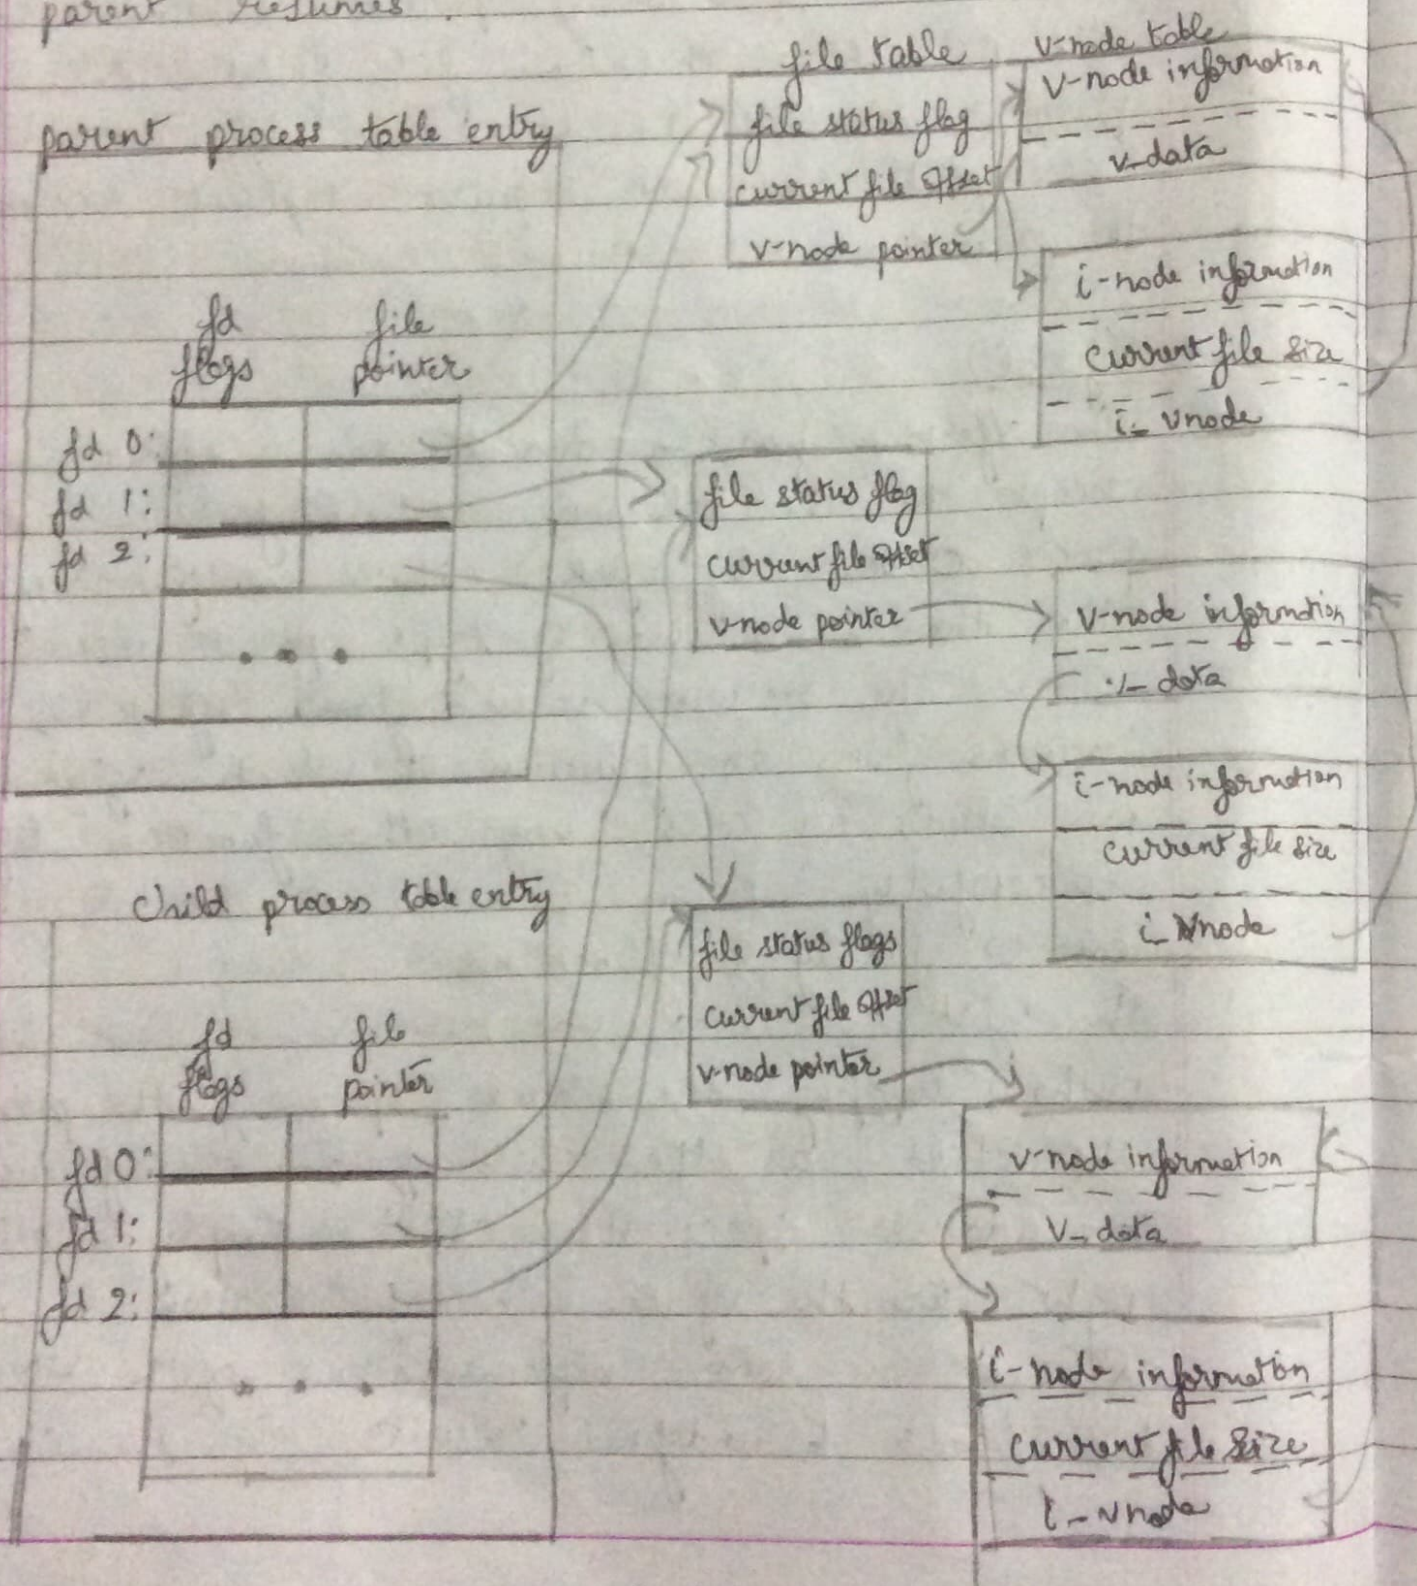 parent resumes.
file table
v-node table
parent process table entry
file status flag
current file offset
v-node pointer
v-node information
v_data
i-node information
current file size
i_vnode
fd
flags
file
pointer
fd 0:
fd 1:
fd 2:
. . .
file status flag
current file offset
v-node pointer
v-node information
v_data
i-node information
current file size
i_vnode
child process table entry
fd
flags
file
pointer
fd 0:
fd 1:
fd 2:
. . .
file status flags
current file offset
v-node pointer
v-node information
v_data
i-node information
current file size
i_vnode